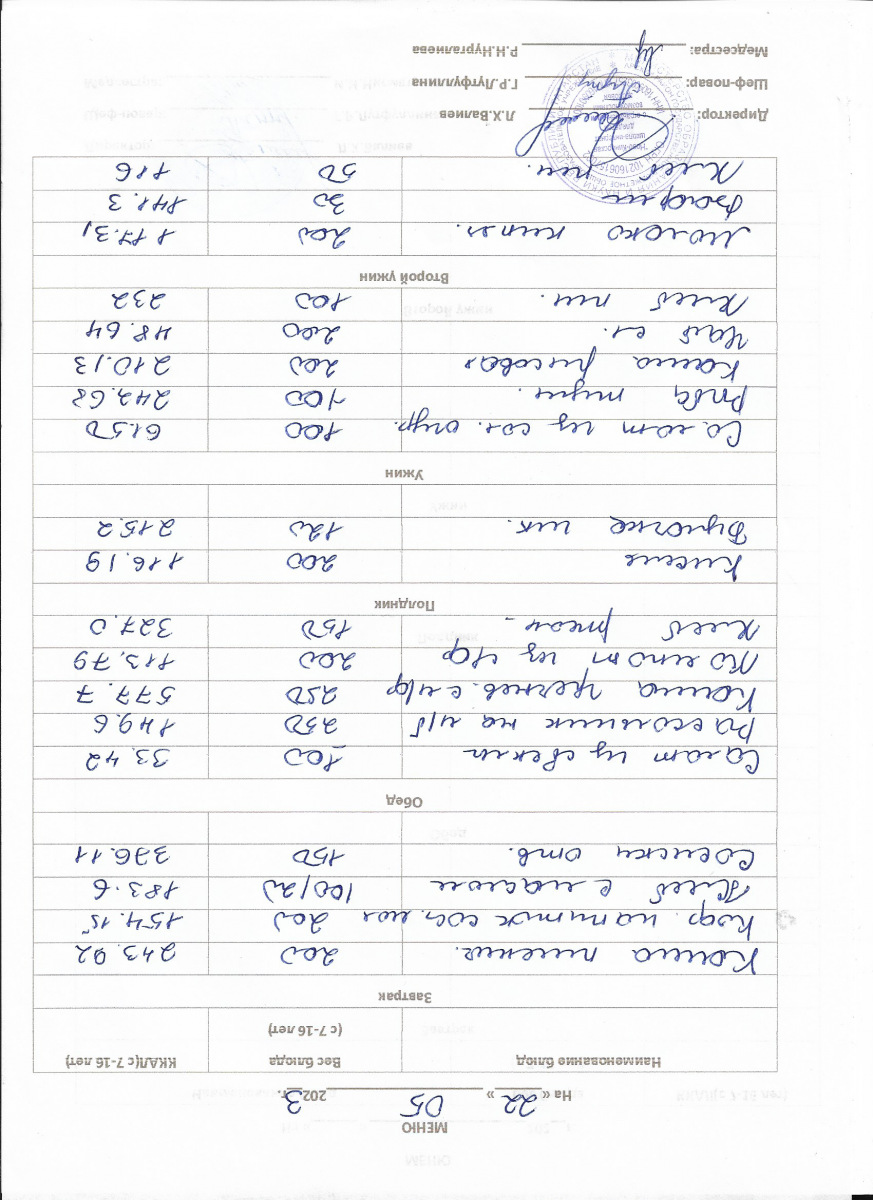 МЕНЮ
На « 22 » 05 2023 г.
Наименование блюд Вес блюда (с 7-16 лет) ККАЛ(с 7-16 лет)
Завтрак
Каша пшенная. 200 243.92
Коф. напиток 200 154.15
Хлеб с маслом 100/20 183.6
Сосиски отв. 150 336.11
Обед
Салат из свеклы 100 33.42
Рассольник на м/б 250 149.6
Каша гречнев. с м/ф 250 577.7
Компот из с/ф 200 113,79
Хлеб ржан 150 327.0
Полдник
Кисель 200 116.19
Булочка шк. 120 215.2
Ужин
Салат из сол. огур. 100 61.50
Рыба туш. 100 242,68
Каша рисовая 200 210,13
Чай сл. 200 48.64
Хлеб пш. 100 232
Второй ужин
Молоко кипяч. 200 117.31
Вафли 30 141.3
Хлеб пш. 50 116
Директор: Л.Х.Валиев
Шеф-повар: Г.Р.Лутфуллина
Медсестра: Р.Н.Нургалиева